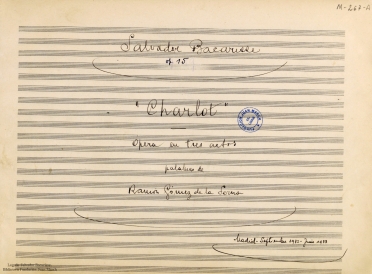 M-267-A
Salvador Bacarisse
op. 15
"Charlot"
Opera en tres actos
palabras de
Ramon Gómez de la Serna
Madrid-Septiembre 1932-Junio 1933
Legado Salvador Bacarisse
Biblioteca Fundación Juan March